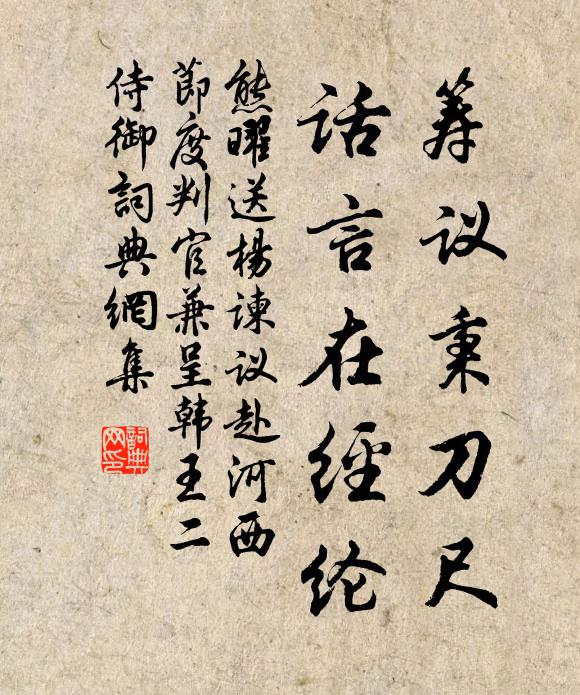 筹议秉刀尺
话言在經纶
熊曜送楊諫议赴河西
節度判官兼呈韩王二
侍御詞典網集
詞典
网印